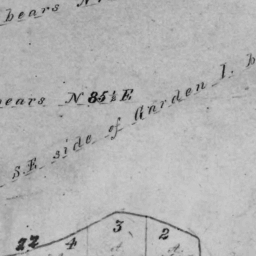 bears N
bears N 85½ E
S.E side of Garden I. b
22 4 3 2